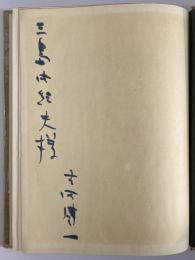 三島由紀夫様
吉田健一